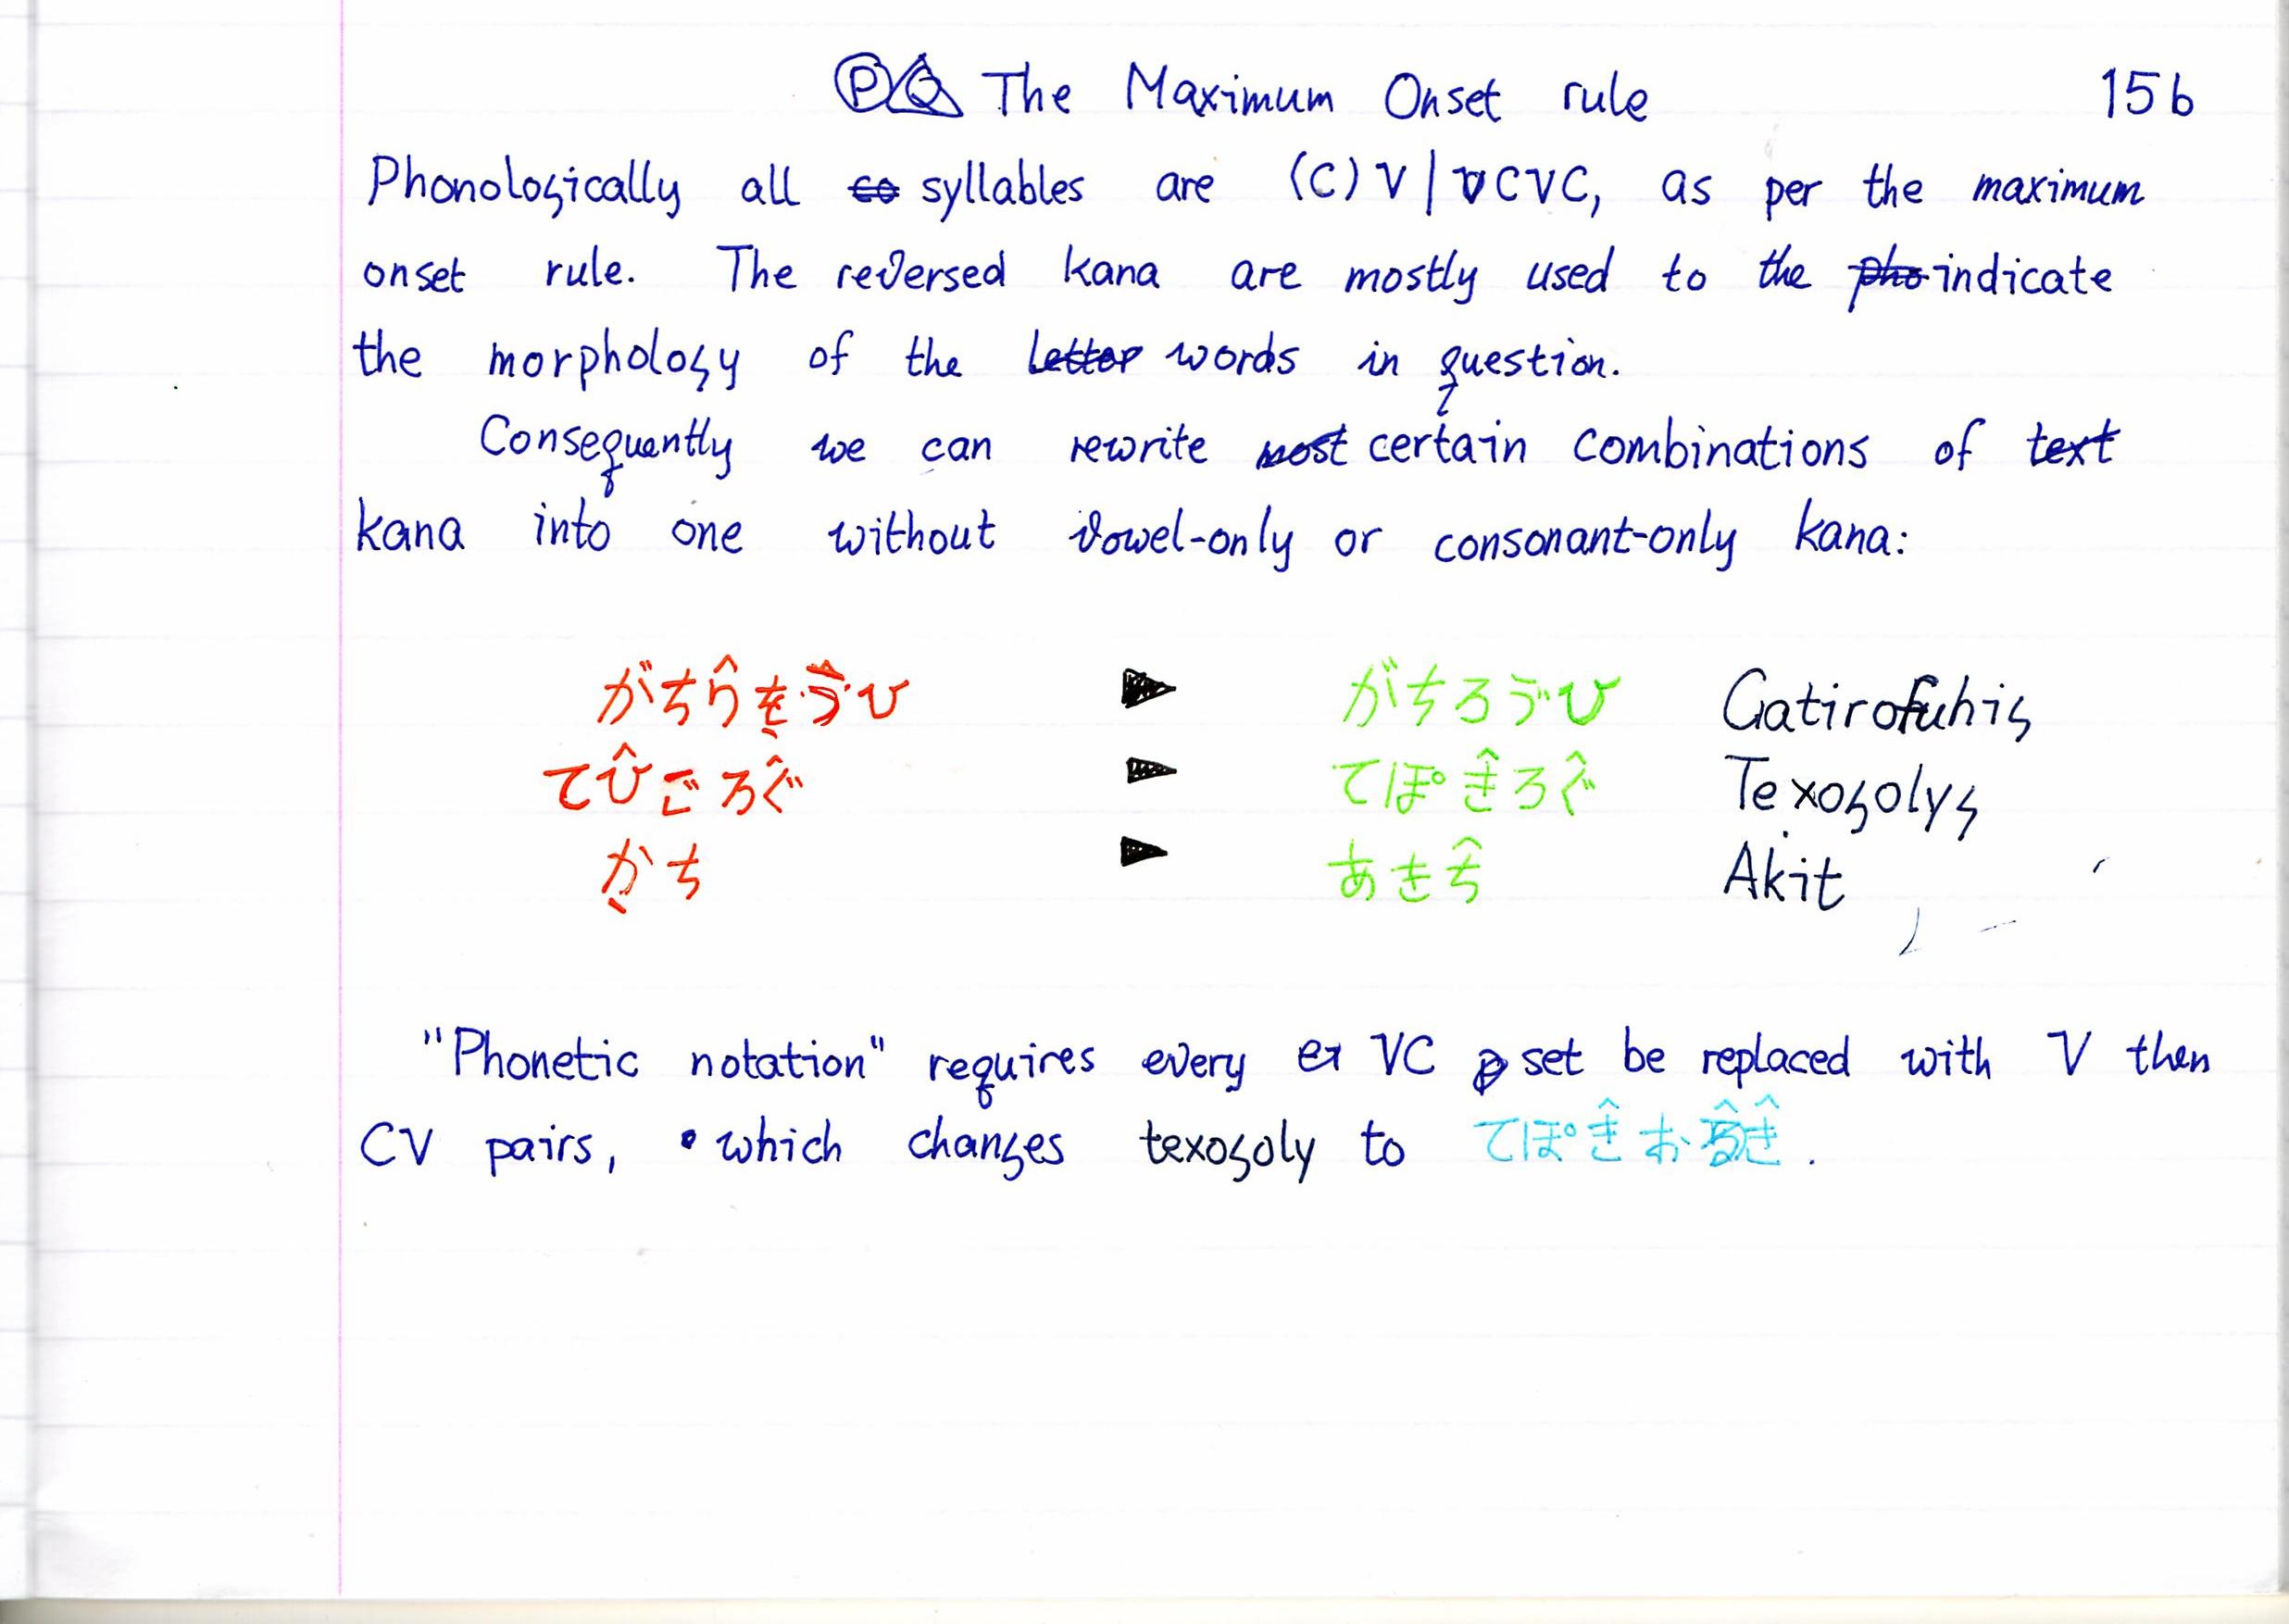 PQ The Maximum Onset rule 15b
Phonologically all syllables are (C)V|CVC, as per the maximum
onset rule. The reversed kana are mostly used to the indicate
the morphology of the words in question.
Consequently we can rewrite certain combinations of
kana into one without vowel-only or consonant-only kana:
がちろうひ Gatirofuhig
てひ̂ごろぐ̂ てぽき̂ろぐ̂ Texogolyg
かち あきち̂ Akit
"Phonetic notation" requires every VC set be replaced with V then
CV pairs, which changes texogoly to てぽき̂お